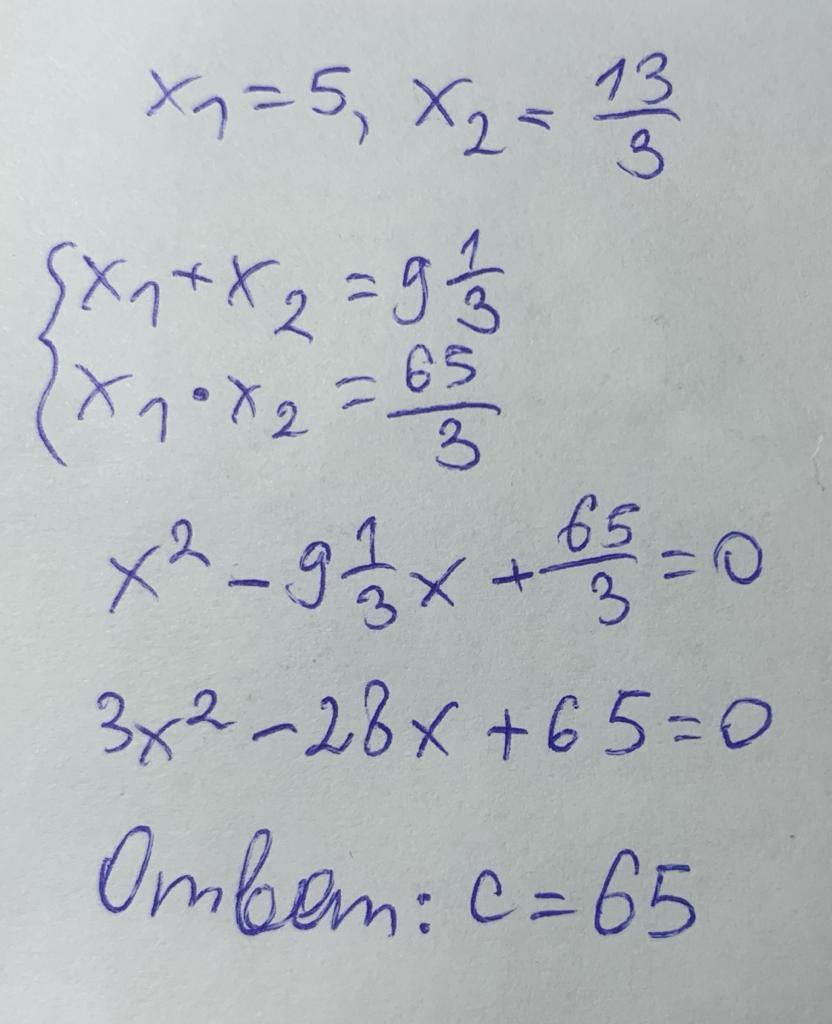 x₁ = 5, x₂ = 13/3
{ x₁ + x₂ = 9 1/3
x₁ · x₂ = 65/3
x² - 9 1/3 x + 65/3 = 0
3x² - 28x + 65 = 0
Ответ: c = 65